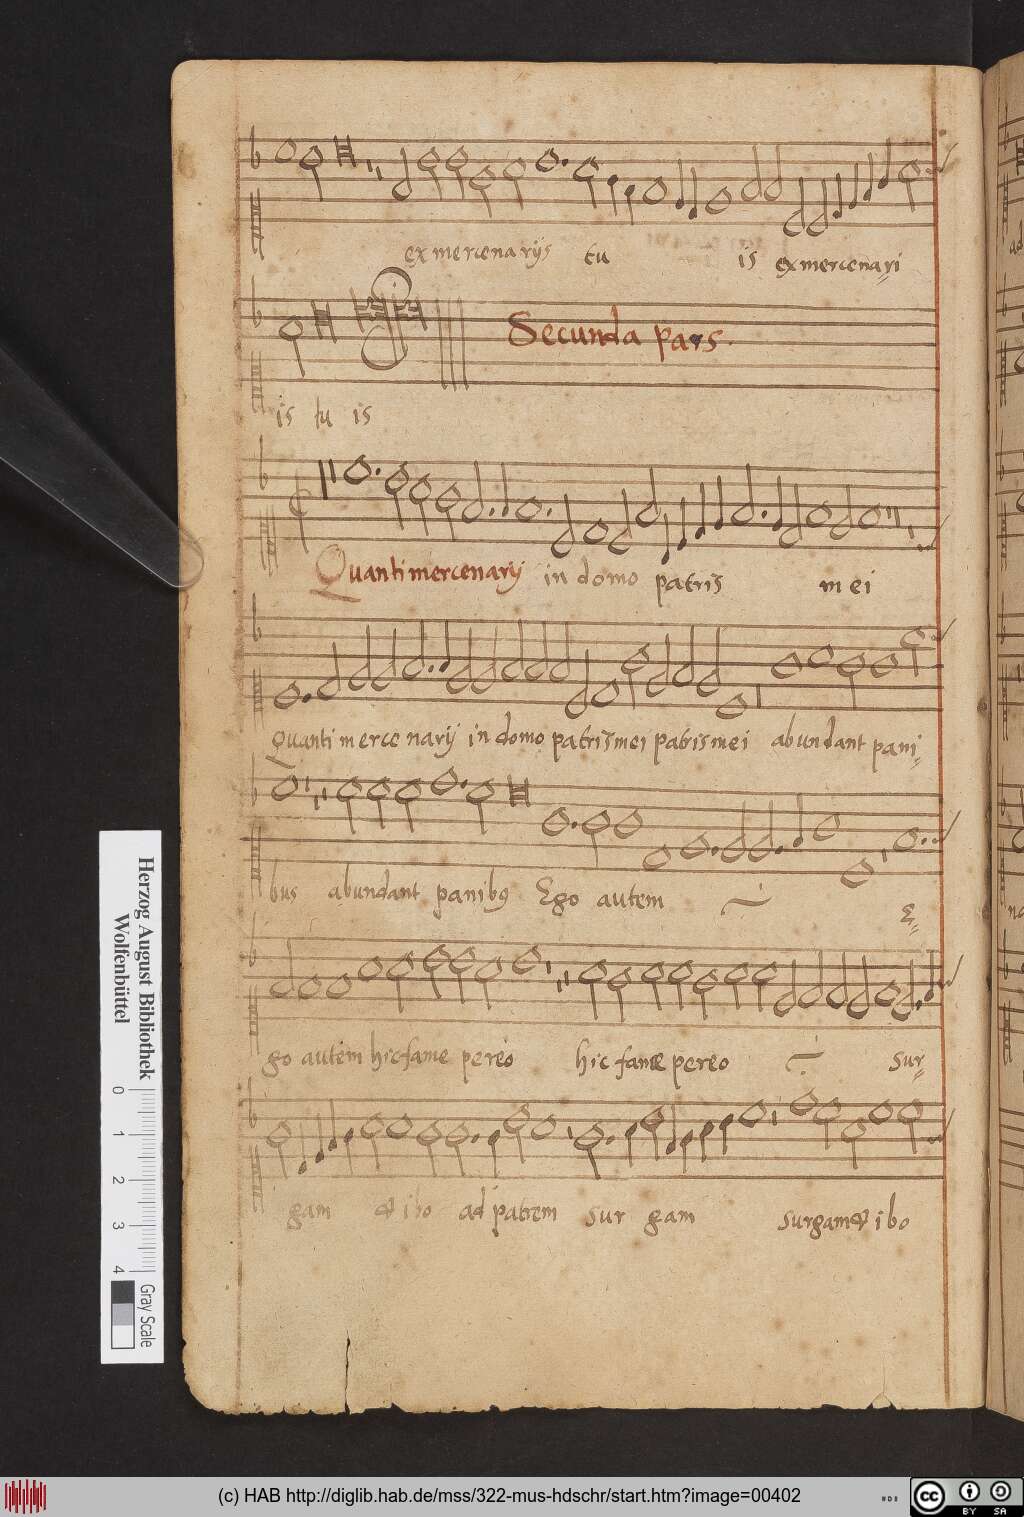 ex mercenarijs tu is ex mercenari
Secunda pars.
is tu is
Quanti mercenarij in domo patris mei
Quanti mercenarij in domo patris mei patris mei abundant pani
bus abundant panibꝰ Ego autem E
go autem hic fame pereo hic fame pereo Sur
gam & ibo ad patrem sur gam surgam & ibo
Herzog August Bibliothek
Wolfenbüttel
0 1 2 3 4
Gray Scale
(c) HAB http://diglib.hab.de/mss/322-mus-hdschr/start.htm?image=00402
cc BY SA